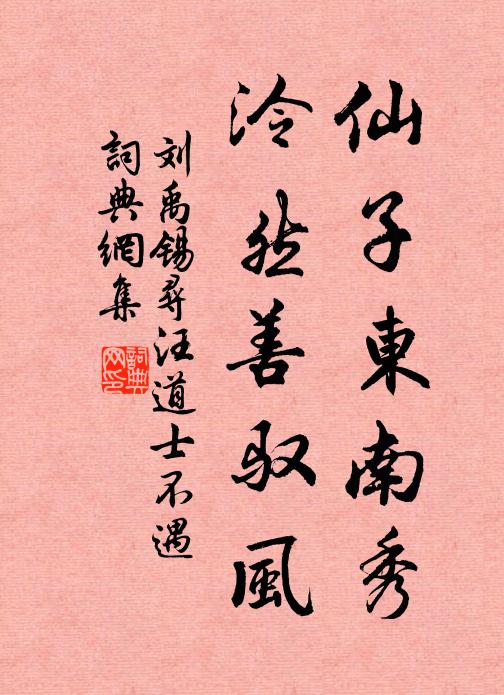 仙子東南秀
泠然善驭風
刘禹锡尋汪道士不遇
詞典網集
詞典網印